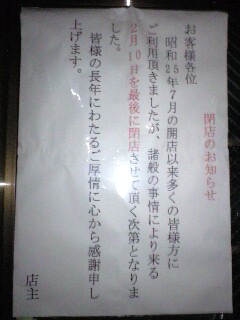 閉店のお知らせ
お客様各位
昭和25年7月の開店以来多くの皆様方に
ご利用頂きましたが、諸般の事情により来る
2月10日を最後に閉店させて頂く次第となりま
した。
皆様の長年にわたるご厚情に心から感謝申し
上げます。
店主